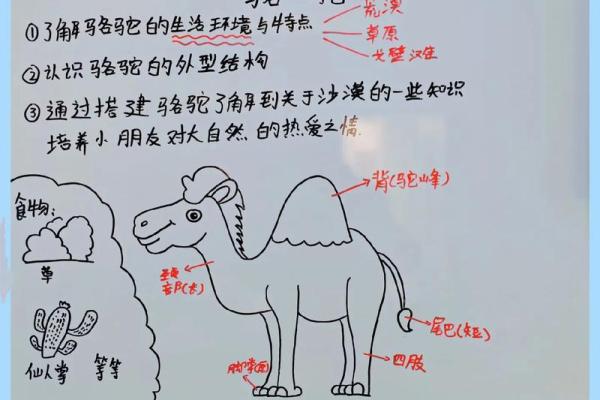 ①了解骆驼的生活环境与特点
荒漠
草原
戈壁
②认识骆驼的外型结构
③通过搭建骆驼了解到关于沙漠的一些知识
培养小朋友对大自然的热爱之情
背(驼峰)
食物:
草
仙人掌 等等
颈
部(长)
尾巴(短)
四肢
脚掌